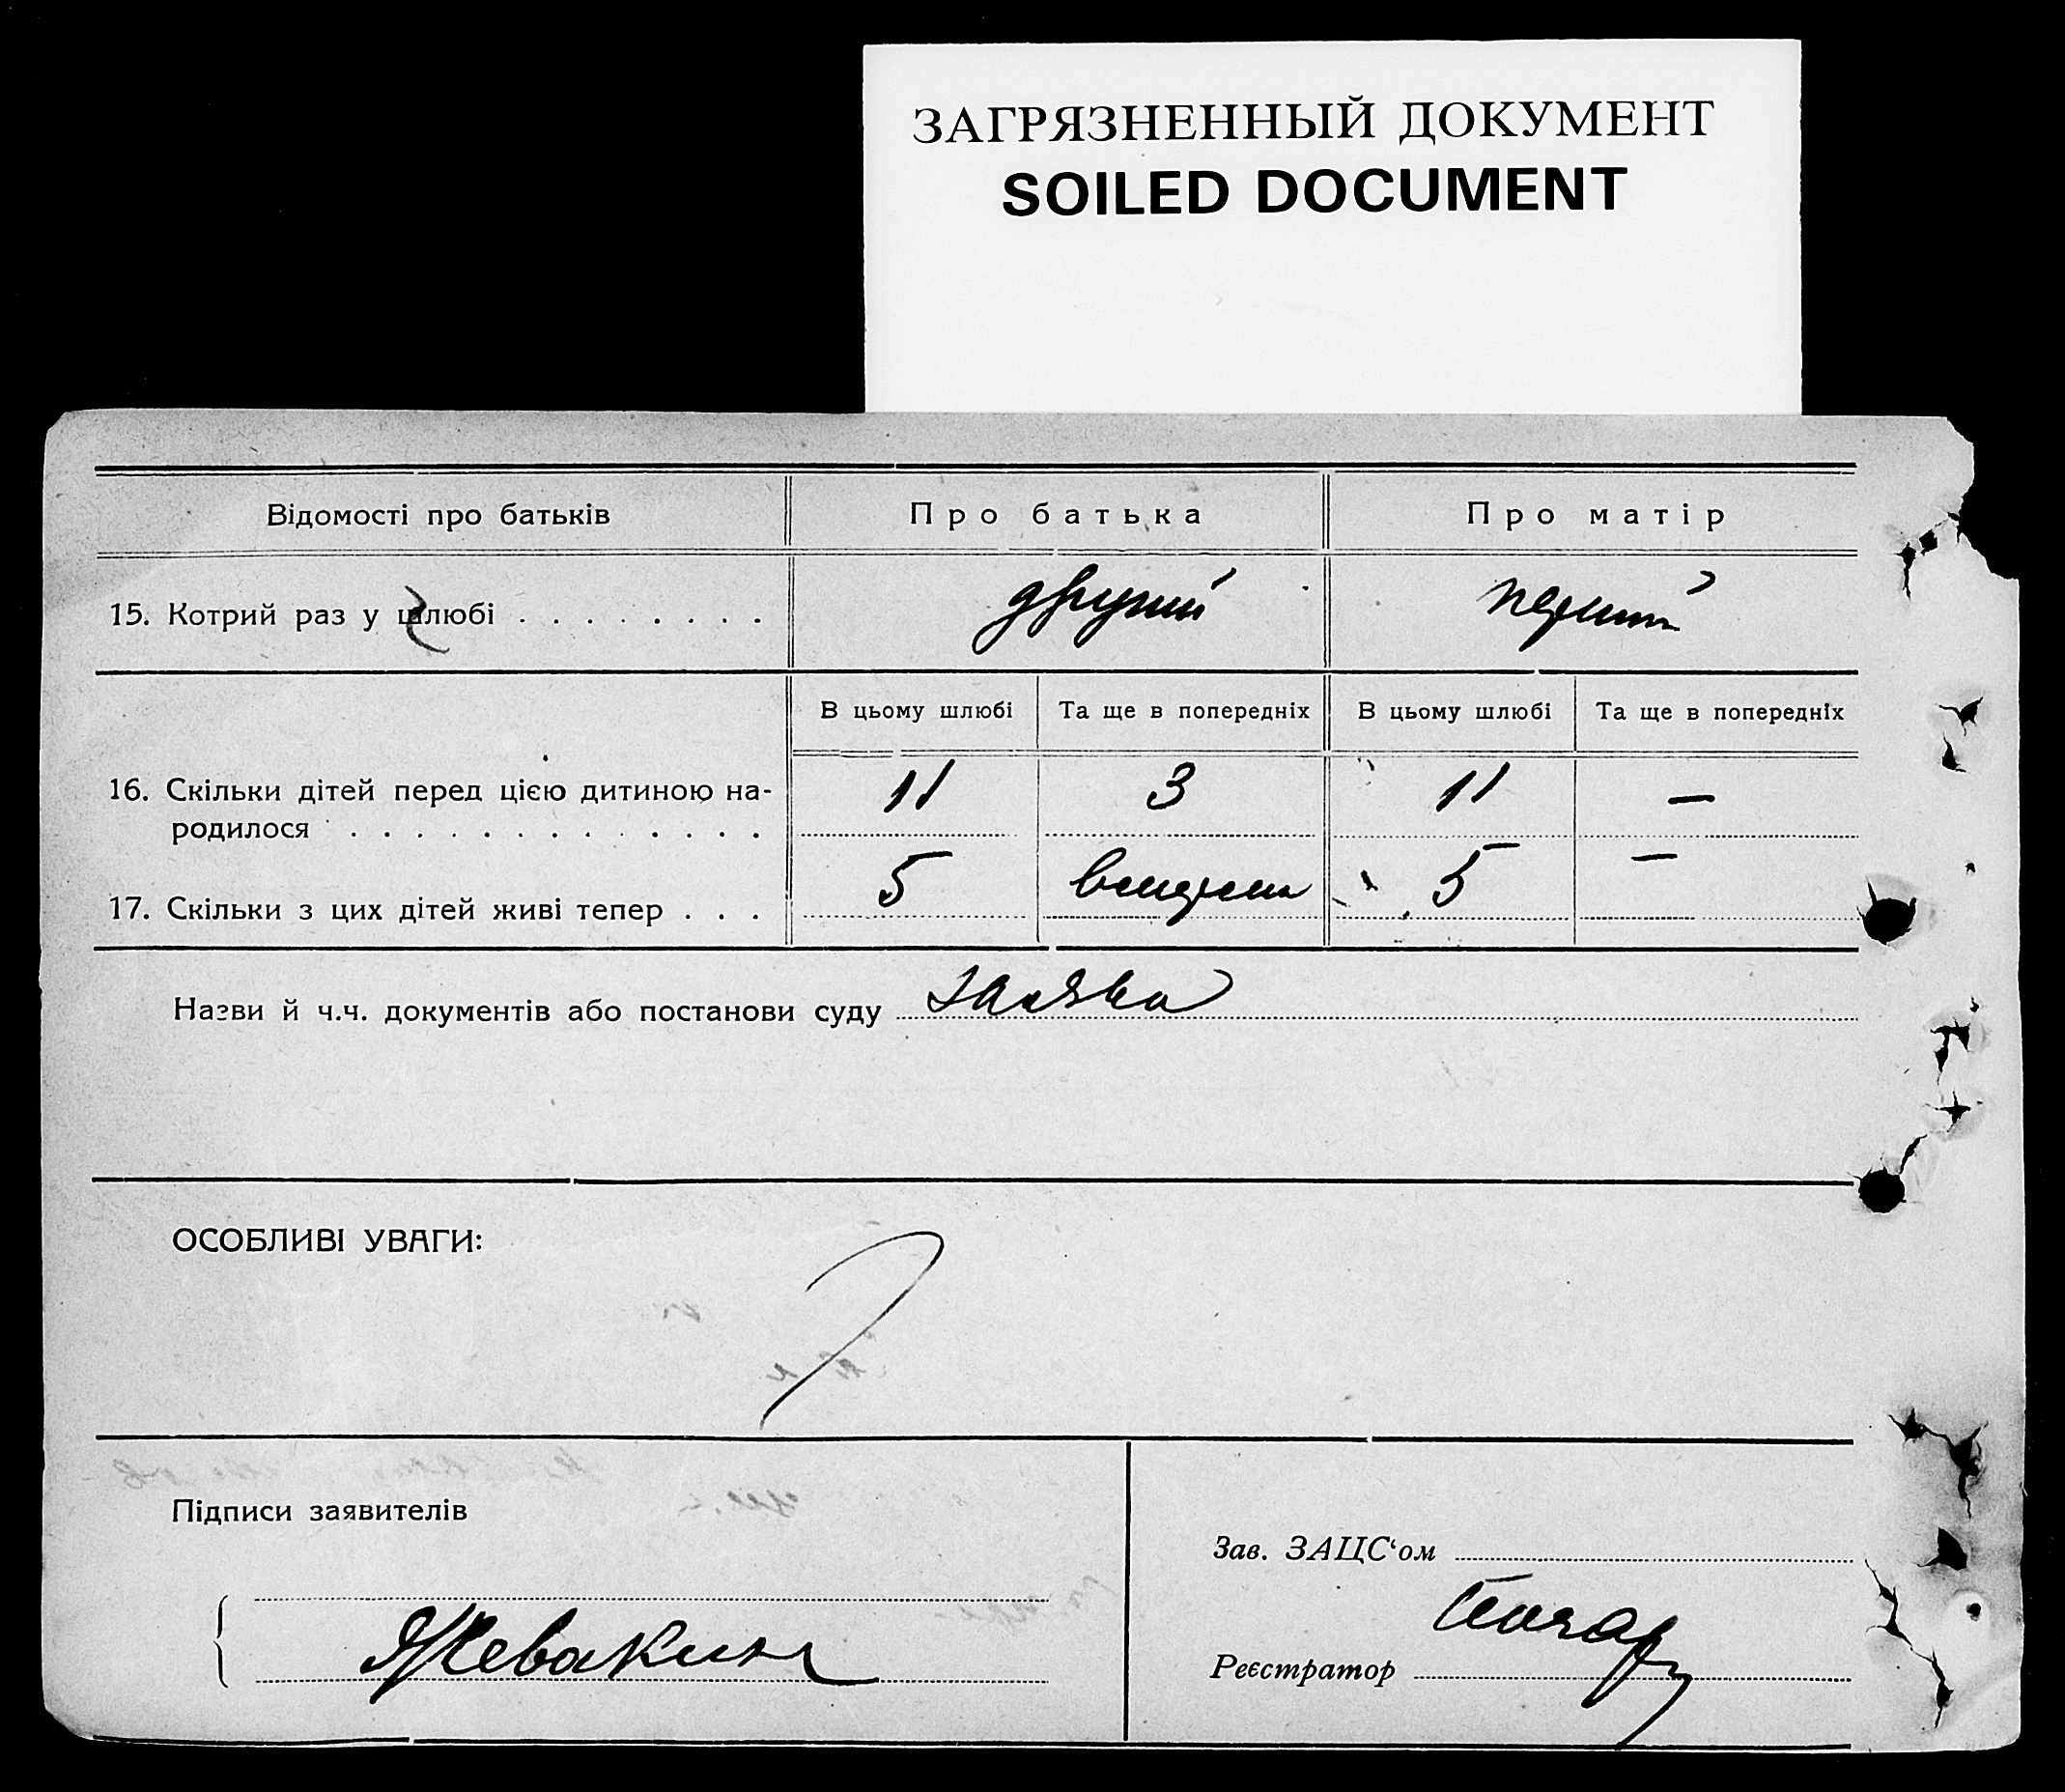 ЗАГРЯЗНЕННЫЙ ДОКУМЕНТ
SOILED DOCUMENT
Відомості про батьків Про батька Про матір
15. Котрий раз у шлюбі . . . . . . . . другий перший
В цьому шлюбі Та ще в попередніх В цьому шлюбі Та ще в попередніх
16. Скільки дітей перед цією дитиною на-
родилося . . . . . . . . . . . . . 11 3 11 —
17. Скільки з цих дітей живі тепер . . . 5 5 —
Назви й ч.ч. документів або постанови суду заява
ОСОБЛИВІ УВАГИ:
Підписи заявителів
Зав. ЗАЦС‘ом
Жевакин
Реєстратор